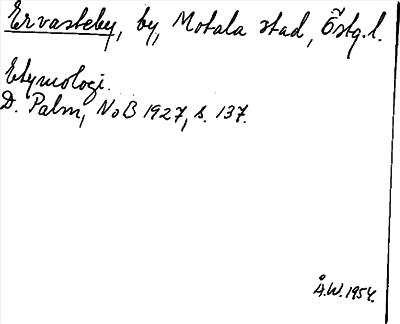 Ervasteby, by, Motala stad, Östg.l.
Etymologi.
D. Palm, NoB 1927, s. 137.
Å.W. 1954.